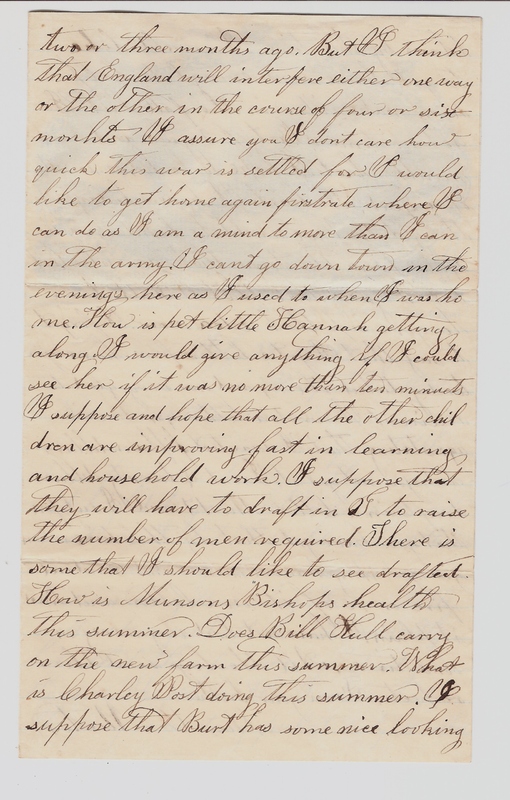 two or three months ago. But I think
that England will interfere either one way
or the other in the course of four or six
monhts I assure you I dont care how
quick this war is settled for I would
like to get home again firstrate where I
can do as I am a mind to more than I can
in the army. I cant go down town in the
evenings, here as I used to when I was ho
me. How is pet little Hannah getting
along. I would give anything if I could
see her if it was no more than ten minuets
I suppose and hope that all the other chil
dren are improving fast in learning
and household work. I suppose that
they will have to draft in S. to raise
the number of men required. There is
some that I should like to see drafted.
How is Munsons Bishops health
this summer. Does Bill Hull carry
on the new farm this summer. What
is Charley Post doing this summer. I
suppose that Burt has some nice looking